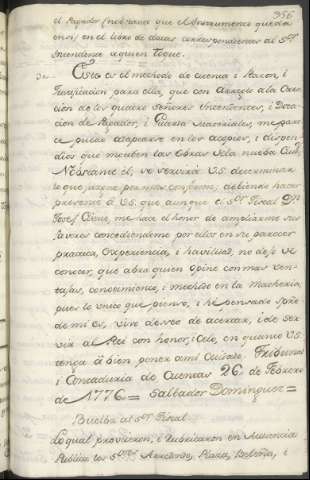 356
el Pagador, (no obstante que el Instrumento queda
en si) en el libro de datas correspondientes al S.or
Intendente a quien toque.
Este es el methodo de cuenta i Razon, i
Justificazion para ella, que con Arreglo a la Crea
cion de los quatro Señores Intendentes, i Dota
cion de Pagador, i Guarda Materiales, me pare
ce puede adaptarse en los acopios, i dispen
dios que incluten las Obras de la nueba Ciud.
No obstante él, se servirá V.S. determinar
lo que juzgue por mas conforme; debiendo hacer
presente á V.S. que aunque el S.or Fiscal D.n
Josef Cistue, me hace el honor de ampliarme sus
favores concediendome por ellos en su parecer
practica, Experiencia, i havilidad, no dejo de
conocer, que abrá quien opine con mas ven
tajas, conocimiento, i methodo en la Materia,
pues lo unico que pienso, i hé pensado spre
de mi es, vivo deseo de acertar, i de ser
vir al Rei con honor, i Celo, en quanto V.S.
tenga á bien poner a mi Cuidado. Tribunal
i Contaduria de Cuentas 26 de Febrero
de 1776 = Salbador Dominguez =
Buelba al S.or Fiscal
Lo qual proveieron, i rubricaron en Audiencia
Publica los S.ores Arredondo, Plaza, Beleña, i